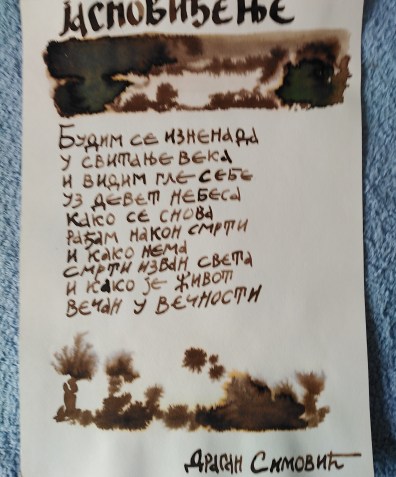 ЈАСНОВИЂЕЊЕ
БУДИМ СЕ ИЗНЕНАДА
У СВИТАЊЕ ВЕКА
И ВИДИМ ГЛЕ СЕБЕ
УЗ ДЕВЕТ НЕБЕСА
КАКО СЕ СНОВА
РАЂАМ НАКОН СМРТИ
И КАКО НЕМА
СМРТИ ИЗВАН СВЕТА
И КАКО ЈЕ ЖИВОТ
ВЕЧАН У ВЕЧНОСТИ
ДРАГАН СИМОВИЋ